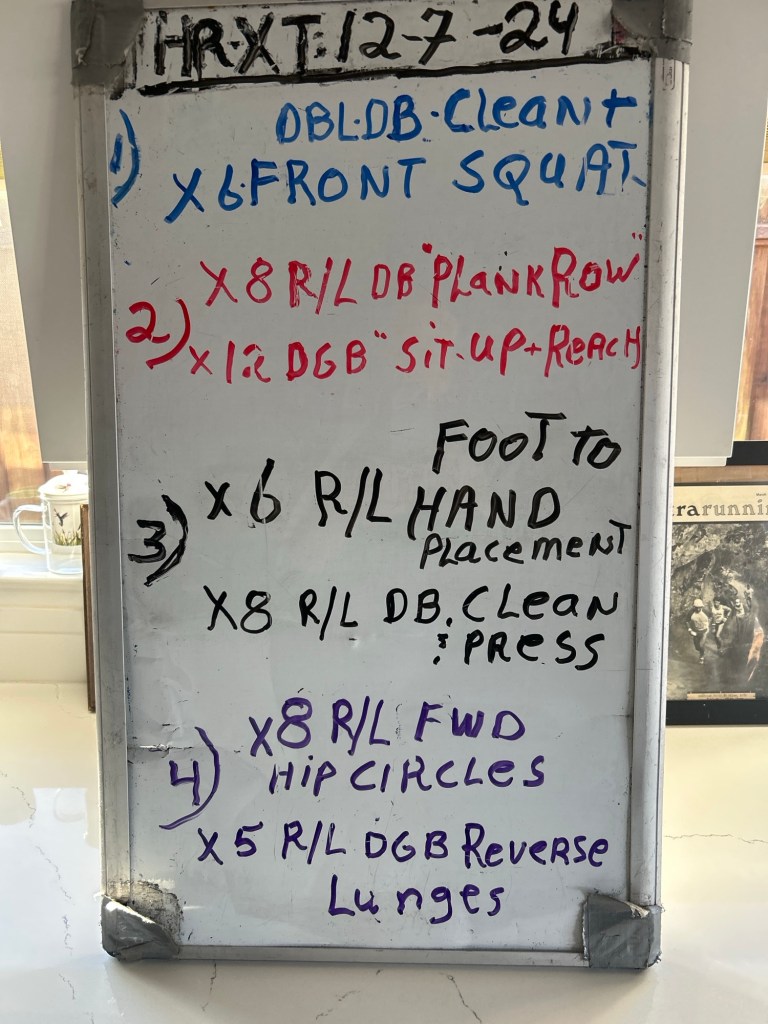 HR-XT: 12-7-24
1) DBL·DB·Clean +
X6·FRONT SQUAT
2) X8 R/L DB "PLANK ROW"
X12 DGB "SIT-UP + REACH
3) X6 R/L FOOT TO
HAND
PLACEMENT
X8 R/L DB. CLEAN
: PRESS
4) X8 R/L FWD
HIP CIRCLES
X5 R/L DGB Reverse
Lunges
Y
rarunni